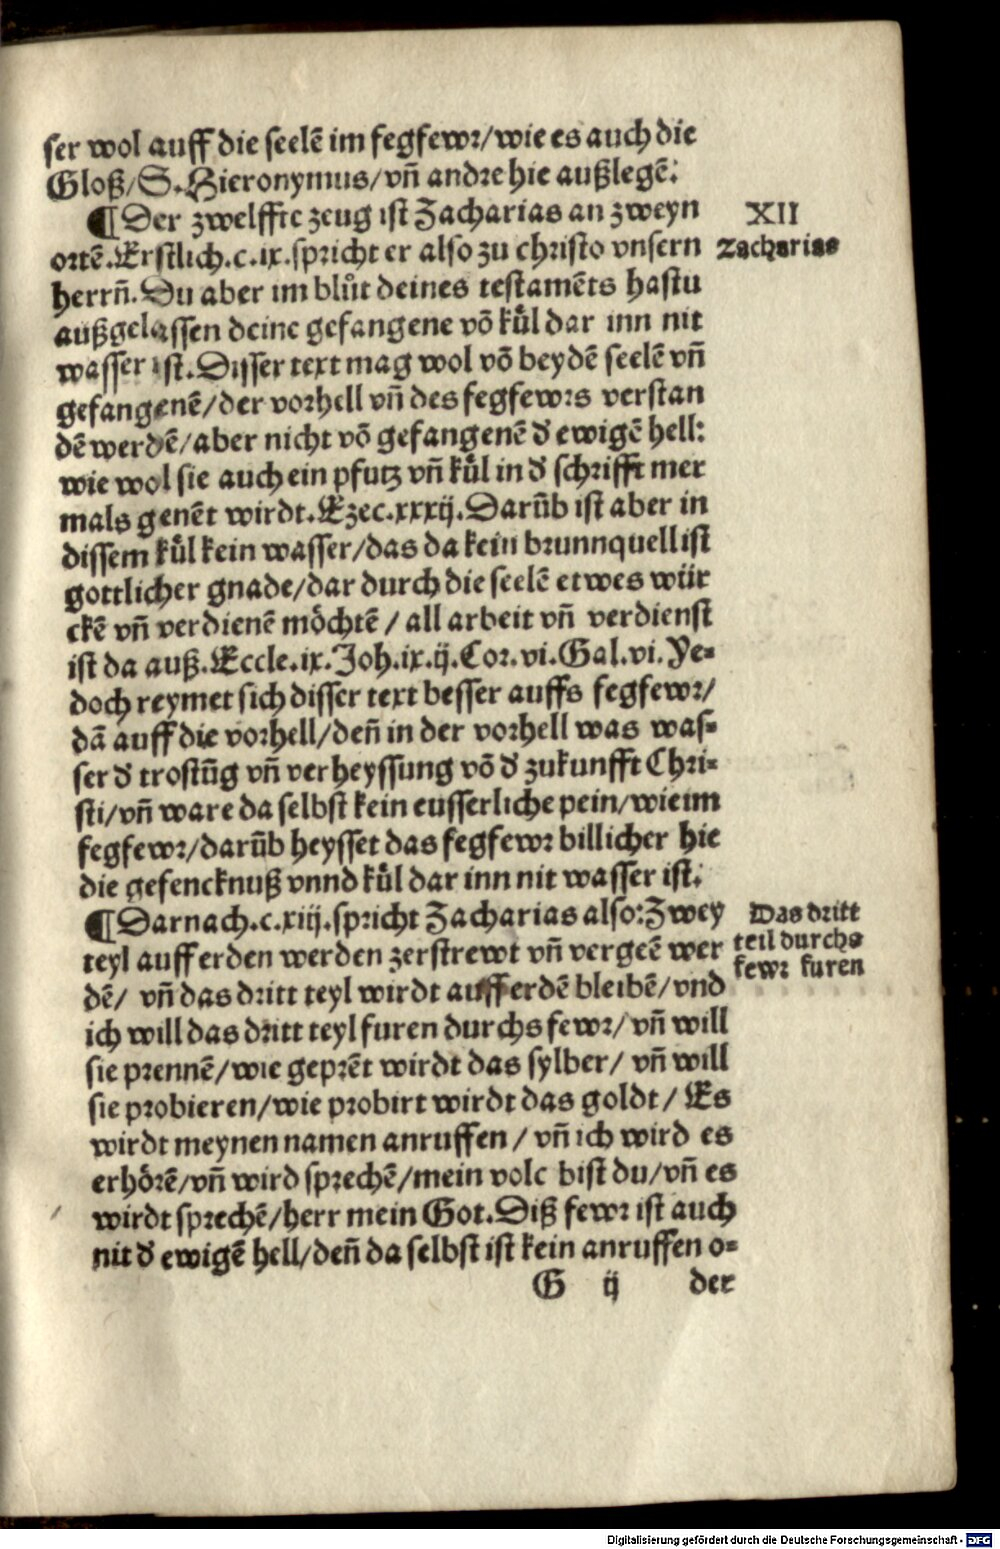 ser wol auff die seelē im fegfewr/wie es auch die
Gloß/S.Hieronymus/vñ andre hie außlegē:
¶Der zwelffte zeug ist Zacharias an zweyn
XII
ortē.Erstlich.c.ix.spricht er also zu christo vnsern
Zacharias
herrñ.Du aber im blůt deines testamēts hastu
außgelassen deine gefangene võ kůl dar inn nit
wasser ist.Disser text mag wol võ beydē seelē vñ
gefangenē/der vorhell vñ des fegfewrs verstan
dē werdē/aber nicht võ gefangenē d̕ ewigē hell:
wie wol sie auch ein pfutz vñ kůl in d̕ schrifft mer
mals genēt wirdt.Ezec.xxxij.Darũb ist aber in
dissem kůl kein wasser/das da kein brunnquell ist
gottlicher gnade/dar durch die seelē etwes wür
ckē vñ verdienē möchtē/all arbeit vñ verdienst
ist da auß.Eccle.ix.Joh.ix.ij.Cor.vi.Gal.vi.Ye-
doch reymet sich disser text besser auffs fegfewr/
dā auff die vorhell/deñ in der vorhell was was-
ser d̕ trostũg vñ verheyssung võ d̕ zukunfft Chri-
sti/vñ ware da selbst kein eusserliche pein/wie im
fegfewr/darũb heysset das fegfewr billicher hie
die gefencknuß vnnd kůl dar inn nit wasser ist.
¶Darnach.c.xiij.spricht Zacharias also:Zwey
Das dritt
teyl auff erden werden zerstrewt vñ vergeē wer
teil durchs
dē/ vñ das dritt teyl wirdt auff erdē bleibē/vnd
fewr furen
ich will das dritt teyl furen durchs fewr/vñ will
sie prennē/wie geprēt wirdt das sylber/ vñ will
sie probieren/wie probirt wirdt das goldt/ Es
wirdt meynen namen anruffen/vñ ich wird es
erhörē/vñ wird sprechē/mein volc bist du/vñ es
wirdt sprechē/herr mein Got.Diß fewr ist auch
nit d̕ ewigē hell/deñ da selbst ist kein anruffen o-
G ij der
Digitalisierung gefördert durch die Deutsche Forschungsgemeinschaft - DFG